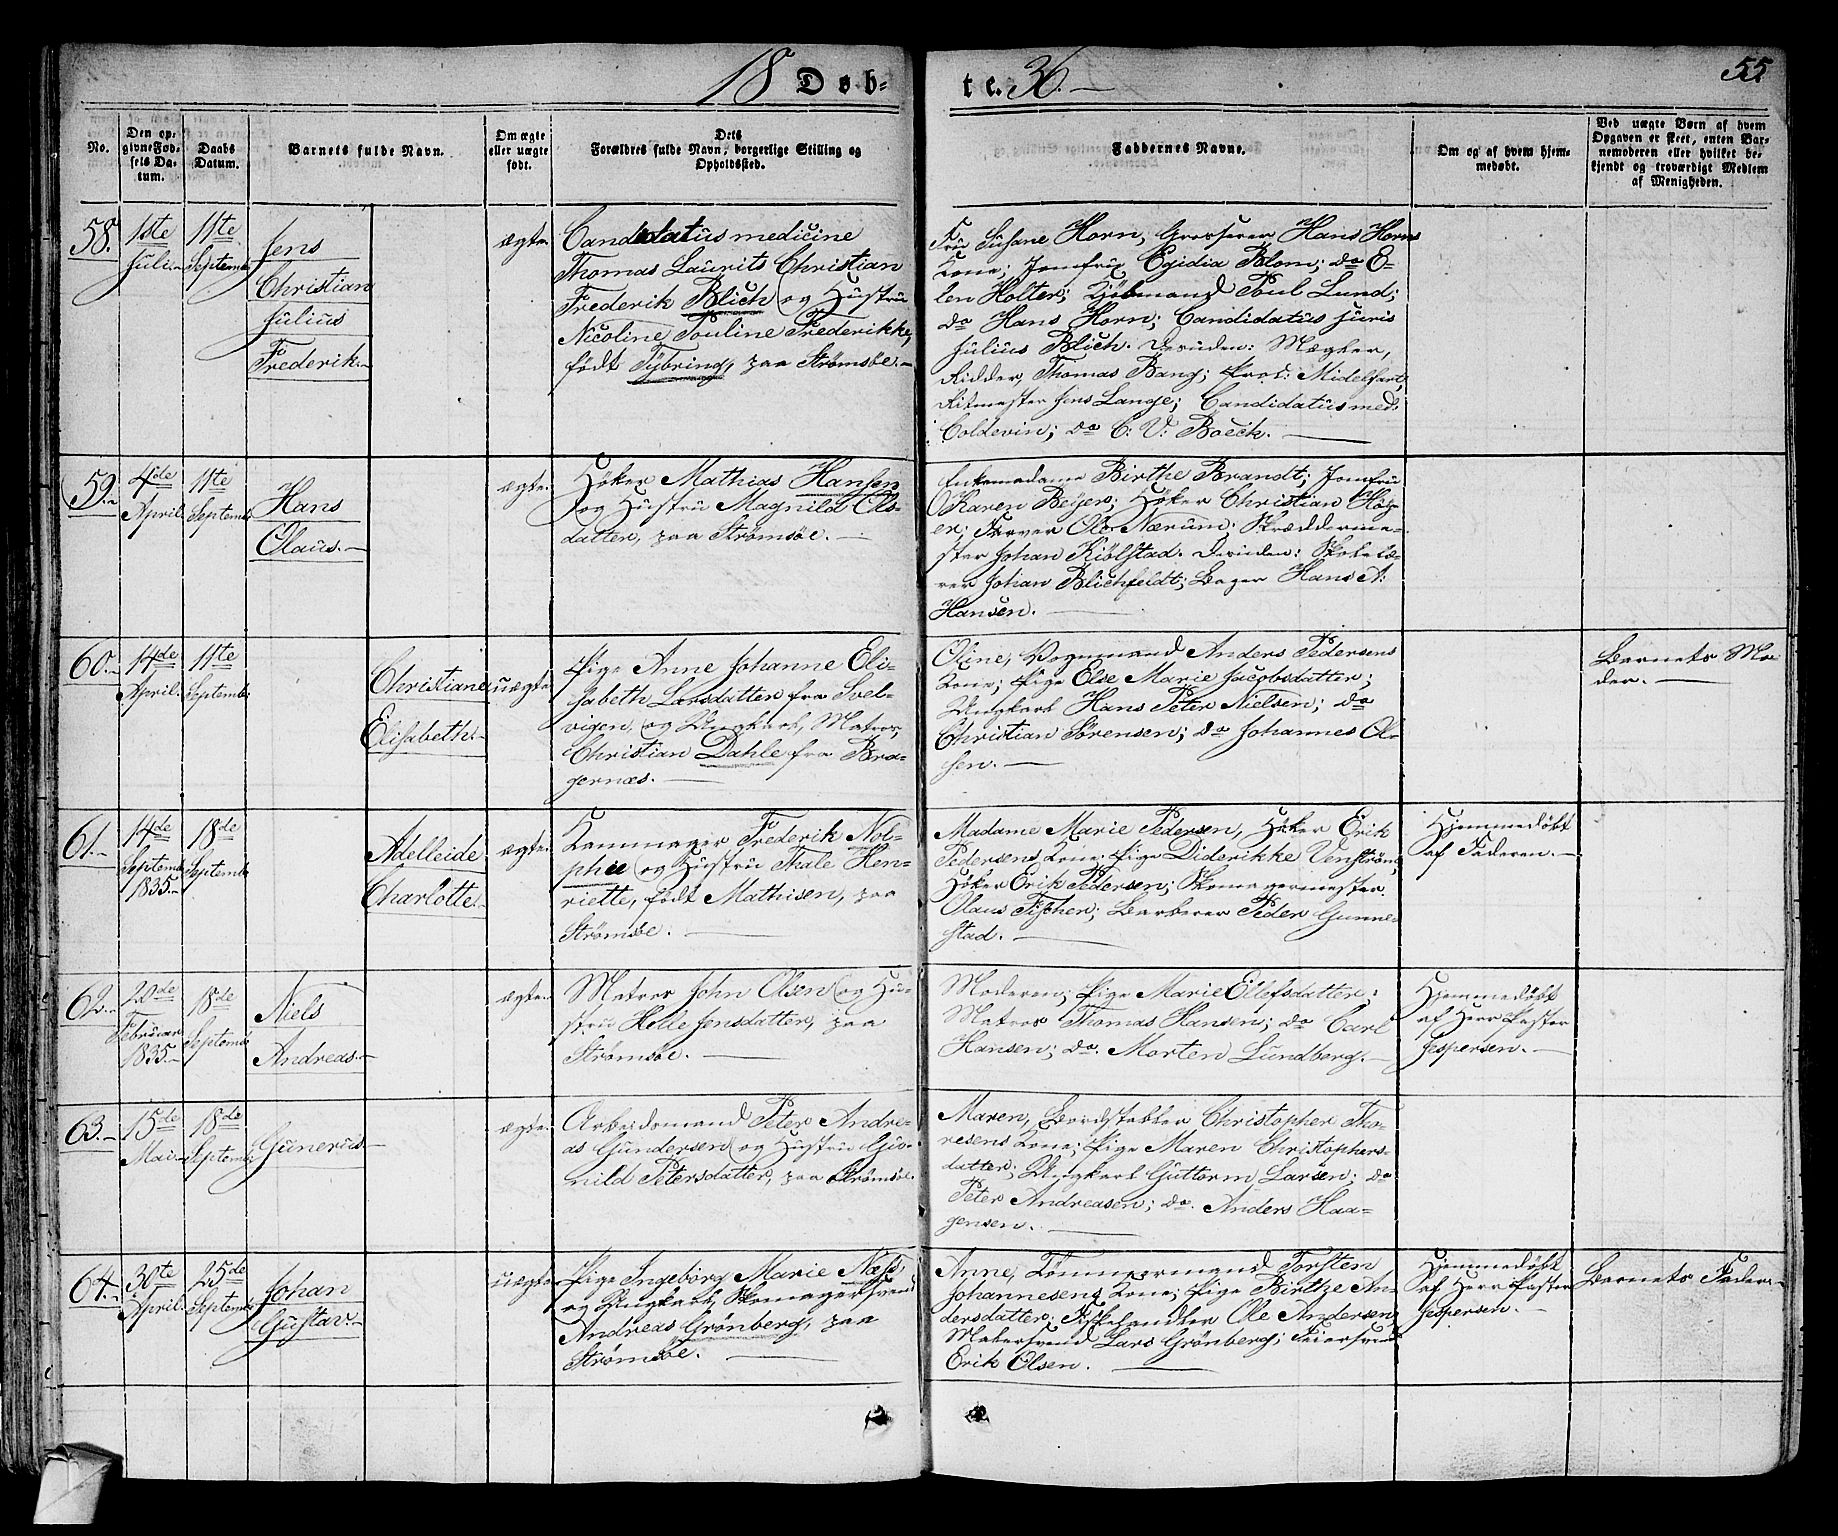 18 Døb-
te. 36.
55.
No.
Den op-
givne Fød-
sels Da-
tum.
Daabs
Datum.
Barnets fulde Navn.
Om ægte
eller uægte
født.
Dets
Forældres fulde Navn, borgerlige Stilling og
Opholdssted.
Faddernes Navne.
Om og af hvem hjem-
medøbt.
Ved uægte Børn af hvem
Opgaven er skeet, enten Bar-
nemoderen eller hvilket be-
kjendt og troværdigt Medlem
af Menigheden.
58.
1ste
Juli
11te
Septemb
Jens
Christian
Julius
Frederik.
ægte
Candidatus medicine
Thomas Laurits Christian
Frederik Blich og Hustru
Nicoline Pouline Frederikke,
født Tybring, paa Strømsøe.
Fru Susane Horn, Grosserer Hans Horns
Kone; Jomfru Egidia Blom; do E-
len Holter; Kjøbmand Poul Lund;
do Hans Horn; Candidatus juris
Julius Blich. Desuden: Mægler,
Ridder, Thomas Bang; Prov: Midelfart,
Ritmester Jens Lange; Candidatus med:
Coldevin; do C: V: Boeck.
59.
4de
April
11te
Septemb
Hans
Olaus.
ægte.
Høker Mathias Hansen
og Hustru Magnild Ols-
datter, paa Strømsøe.
Enkemadame Birthe Brandt; Jomfru
Karen Beyer; Høker Christian Høy-
er; Farver Ole Nærum; Skrædderme-
ster Johan Kiølstad. Desuden: Skolelæ-
rer Johan Blichfeldt; Bager Hans A:
Hansen.
60.
14de
April.
11te
Septemb
Christiane
Elisabeth.
uægte
Pige Anne Johanne Eli-
sabeth Larsdatter fra Svel-
vigen, og Ungkarl, Matros,
Christian Dahle fra Bra-
gernæs.
Oline, Vognmand Anders Pedersens
Kone; Pige Else Marie Jacobsdatter;
Ungkarl Hans Peter Nielsen; do
Christian Sørensen; do Johannes Ol-
sen.
Barnets Mo-
der.
61.
14de
Septemb
1835.
18de
Septemb
Adelleide
Charlotte.
ægte.
Kammager Frederik Nol-
phie og Hustru Thale Hen-
riette, født Mathisen, paa
Strømsøe.
Madame Marie Pedersen, Høker Erik
Pedersens Kone; Pige Diderikke Venstrøm;
Høker Erik Pedersen; Skomagermester
Olaus Fischer; Barberer Peder Gunne-
stad.
Hjemmedøbt
af Faderen.
62.
20de
Februar
1835.
18de
Septemb
Niels
Andreas.
ægte.
Matros John Olsen og Hu-
stru Helle Jensdatter, paa
Strømsøe.
Moderen; Pige Marie Ellefsdatter;
Matros Thomas Hansen; do Carl
Hansen; do. Morten Lundberg.
Hjemmedøbt
af Herr Pastor
Jespersen.
63.
15de
Mai
18de
Septemb
Gunerius
ægte.
Arbeidsmand Peter Andre-
as Gundersen og Hustru Gun-
hild Petersdatter, paa Strømsøe.
Maren, Bordstabler Christopher Tho-
resens Kone; Pige Maren Christophers-
datter; Ungkarl Guttorm Larsen; do
Peter Andreasen; do. Anders Haa-
gensen.
64.
30te
April
25de
Septemb
Johan
Gustav.
uægte
Pige Ingeborg Marie Næss,
og Ungkarl, Skomagersvend
Andreas Grønberg, paa
Strømsøe.
Anne, Tømmermand Torsten
Johannesens Kone; Pige Birthe An-
dersdatter; Fiskehandler Ole Andersen;
Malersvend Lars Grønberg; Feiersvend
Erik Olsen.
Hjemmedøbt
af Herr Pastor
Jespersen.
Barnets Fader.